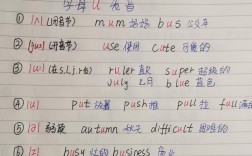 字母 u 发音
① |ʌ| (闭音节) mum 妈妈 bus 公交车
② |juː| (开音节) use 使用 cute 可爱的
③ |uː| (在s,l,j,r后) ruler 直尺 super 超级的
July 七月 blue 蓝色
④ |ʊ| put 放置 push 推 pull 拉 full
⑤ |ə| autumn 秋天 difficult 困难的
⑥ |ɪ| busy 忙的 business 商业